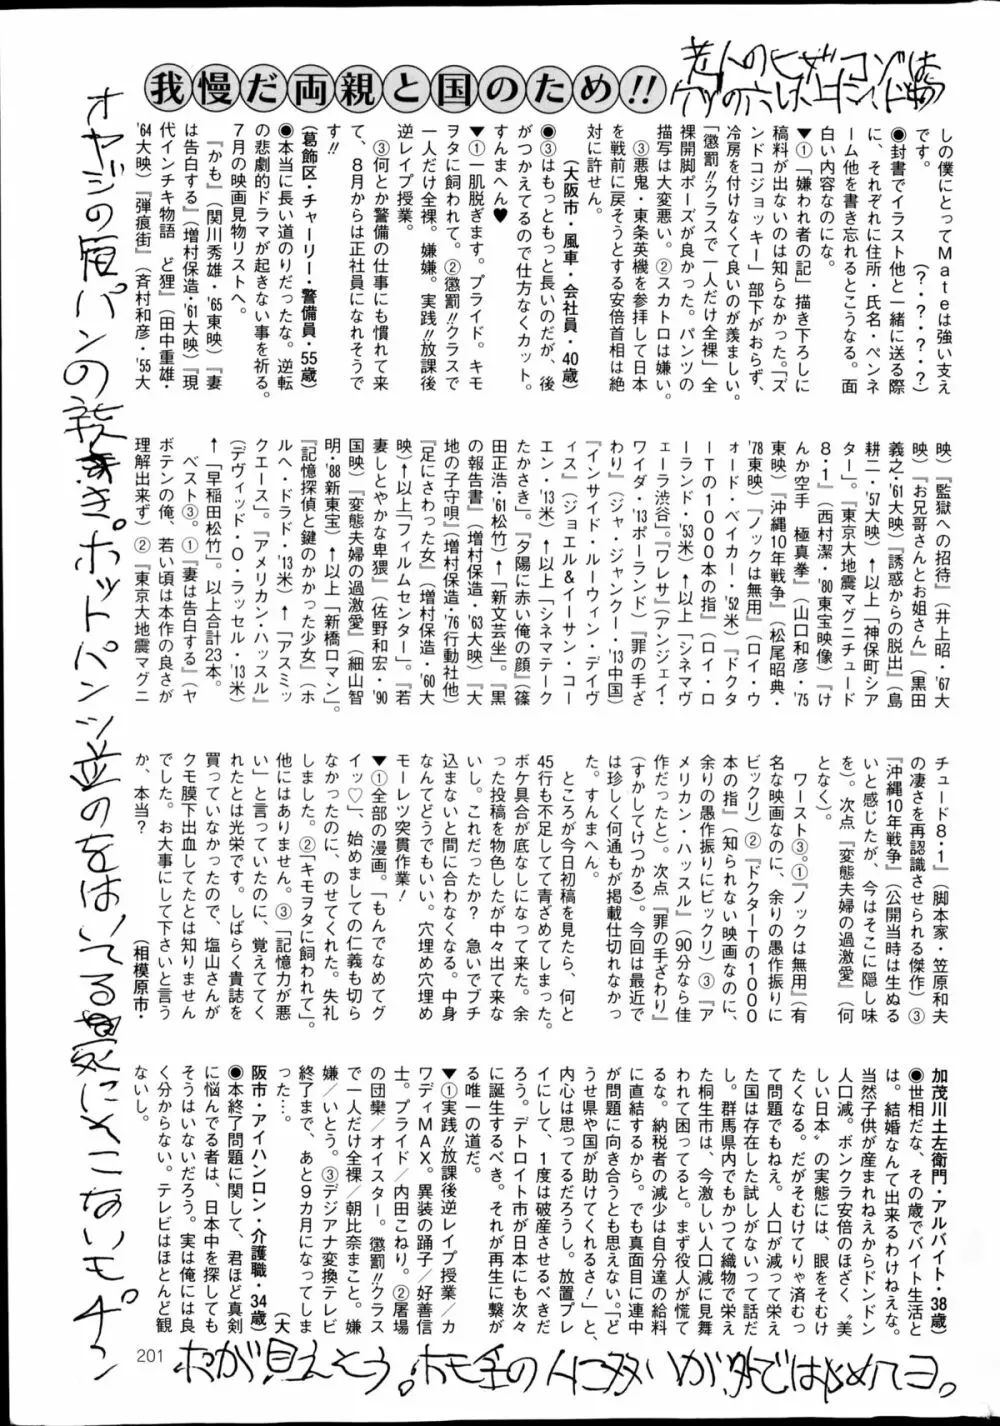 我慢だ両親と国のため!!
しの僕にとってMateは強い支え
です。　　　（？・？・？・？）
●封書でイラスト他と一緒に送る際
に、それぞれに住所・氏名・ペンネ
ーム他を書き忘れるとこうなる。面
白い内容なのにな。
▼①「嫌われ者の記」描き下ろしに
稿料が出ないのは知らなかった。「ズ
ンドコジョッキー」部下がおらず、
冷房を付けなくて良いのが羨ましい。
「懲罰!!クラスで一人だけ全裸」全
裸開脚ポーズが良かった。パンツの
描写は大変悪い。②スカトロは嫌い。
③悪鬼・東条英機を参拝して日本
を戦前に戻そうとする安倍首相は絶
対に許せん。
（大阪市・風車・会社員・40歳）
●③はもっともっと長いのだが、後
がつかえてるので仕方なくカット。
すんまへん♥
▼①一肌脱ぎます。プライド。キモ
ヲタに飼われて。②懲罰!!クラスで
一人だけ全裸。嫌嫌。実践!!放課後
逆レイプ授業。
③何とか警備の仕事にも慣れて来
て、８月からは正社員になれそうで
す!!
（葛飾区・チャーリー・警備員・55歳）
●本当に長い道のりだったな。逆転
の悲劇的ドラマが起きない事を祈る。
７月の映画見物リストへ。
『かも』（関川秀雄・'65東映）『妻
は告白する』（増村保造・'61大映）『現
代インチキ物語　ど狸』（田中重雄・
'64大映）『弾痕街』（斉村和彦・'55大
映）『監獄への招待』（井上昭・'67大
映）『お兄哥さんとお姐さん』（黒田
義之・'61大映）『誘惑からの脱出』（島
耕二・'57大映）↑以上「神保町シア
ター」。『東京大地震マグニチュード
８・１』（西村潔・'80東宝映像）『け
んか空手　極真拳』（山口和彦・'75
東映）『沖縄10年戦争』（松尾昭典・
'78東映）『ノックは無用』（ロイ・ウ
ォード・ベイカー・'52米）『ドクタ
ーＴの１０００本の指』（ロイ・ロ
ーランド・'53米）↑以上「シネマヴ
ェーラ渋谷」。『ワレサ』（アンジェイ・
ワイダ・'13ポーランド）『罪の手ざ
わり』（ジャ・ジャンクー・'13中国）
『インサイド・ルーウィン・デイヴ
ィス』（ジョエル＆イーサン・コー
エン・'13米）↑以上「シネマテーク
たかさき」。『夕陽に赤い俺の顔』（篠
田正浩・'61松竹）↑「新文芸坐」。『黒
の報告書』（増村保造・'63大映）『大
地の子守唄』（増村保造・'76行動社他）
『足にさわった女』（増村保造・'60大
映）↑以上「フィルムセンター」。『若
妻しとやかな卑猥』（佐野和宏・'90
国映）『変態夫婦の過激愛』（細山智
明・'88新東宝）↑以上「新橋ロマン」。
『記憶探偵と鍵のかかった少女』（ホ
ルヘ・ドラド・'13米）↑「アスミッ
クエース」。『アメリカン・ハッスル』
（デヴィッド・Ｏ・ラッセル・'13米）
↑「早稲田松竹」。以上合計23本。
ベスト③。①『妻は告白する』（ヤ
ボテンの俺、若い頃は本作の良さが
理解出来ず）②『東京大地震マグニ
チュード８・１』（脚本家・笠原和夫
の凄さを再認識させられる傑作）③
『沖縄10年戦争』（公開当時は生ぬる
いと感じたが、今はそこに隠し味
を）。次点『変態夫婦の過激愛』（何
となく）。
ワースト③。①『ノックは無用』（有
名な映画なのに、余りの愚作振りに
ビックリ）②『ドクターＴの１０００
本の指』（知られない映画なのに、
余りの愚作振りにビックリ）③『ア
メリカン・ハッスル』（90分なら佳
作だったと）。次点『罪の手ざわり』
（すかしてけつかる）。今回は最近で
は珍しく何通もが掲載仕切れなかっ
た。すんまへん。
ところが今日初稿を見たら、何と
45行も不足してて青ざめてしまった。
ボケ具合が底なしになって来た。余
った投稿を物色したが中々出て来な
いし。これだったか？　急いでブチ
込まないと間に合わなくなる。中身
なんてどうでもいい。穴埋め穴埋め
モーレツ突貫作業！
▼①全部の漫画。「もんでなめてグ
イッ♡」、始めましての仁義も切ら
なかったのに、のせてくれた。失礼
しました。②「キモヲタに飼われて」。
他にはありません。③「記憶力が悪
い」と言っていたのに、覚えててく
れたとは光栄です。しばらく貴誌を
買っていなかったので、塩山さんが
クモ膜下出血してたとは知りません
でした。お大事にして下さいと言う
か、本当？
（相模原市・
加茂川土左衛門・アルバイト・38歳）
●世相だな、その歳でバイト生活と
は。結婚なんて出来るわけねえな。
当然子供が産まれねえからドンドン
人口減。ボンクラ安倍のほざく〝美
しい日本〟の実態には、眼をそむけ
たくなる。だがそむけてりゃ済むっ
て問題でもねえ。人口が減って栄え
た国は存在した試しがないって話だ
し。群馬県内でもかつて織物で栄え
た桐生市は、今激しい人口減に見舞
われて困ってると。まず役人が慌て
るな。納税者の減少は自分達の給料
に直結するから。でも真面目に連中
が問題に向き合うとも思えない。「ど
うせ県や国が助けてくれるさ！」と、
内心は思ってるだろうし。放置プレ
イにして、１度は破産させるべきだ
ろう。デトロイト市が日本にも次々
に誕生するべき。それが再生に繋が
る唯一の道だ。
▼①実践!!放課後逆レイプ授業／カ
ワディMAX。異装の踊子／好善信
士。プライド／内田こねり。②屠場
の団欒／オイスター。懲罰!!クラス
で一人だけ全裸／朝比奈まこと。嫌
嫌／いとう。③デジアナ変換テレビ
終了まで、あと９カ月になってしま
った…。　　　　　　　　　　（大
阪市・アイハンロン・介護職・34歳）
●本終了問題に関して、君ほど真剣
に悩んでる者は、日本中を探しても
そうはいないだろう。実は俺には良
く分からない。テレビはほとんど観
ないし。
オヤジの短パンの
ホットパンツ並のをはいてる
201
が見えそう。ホモ